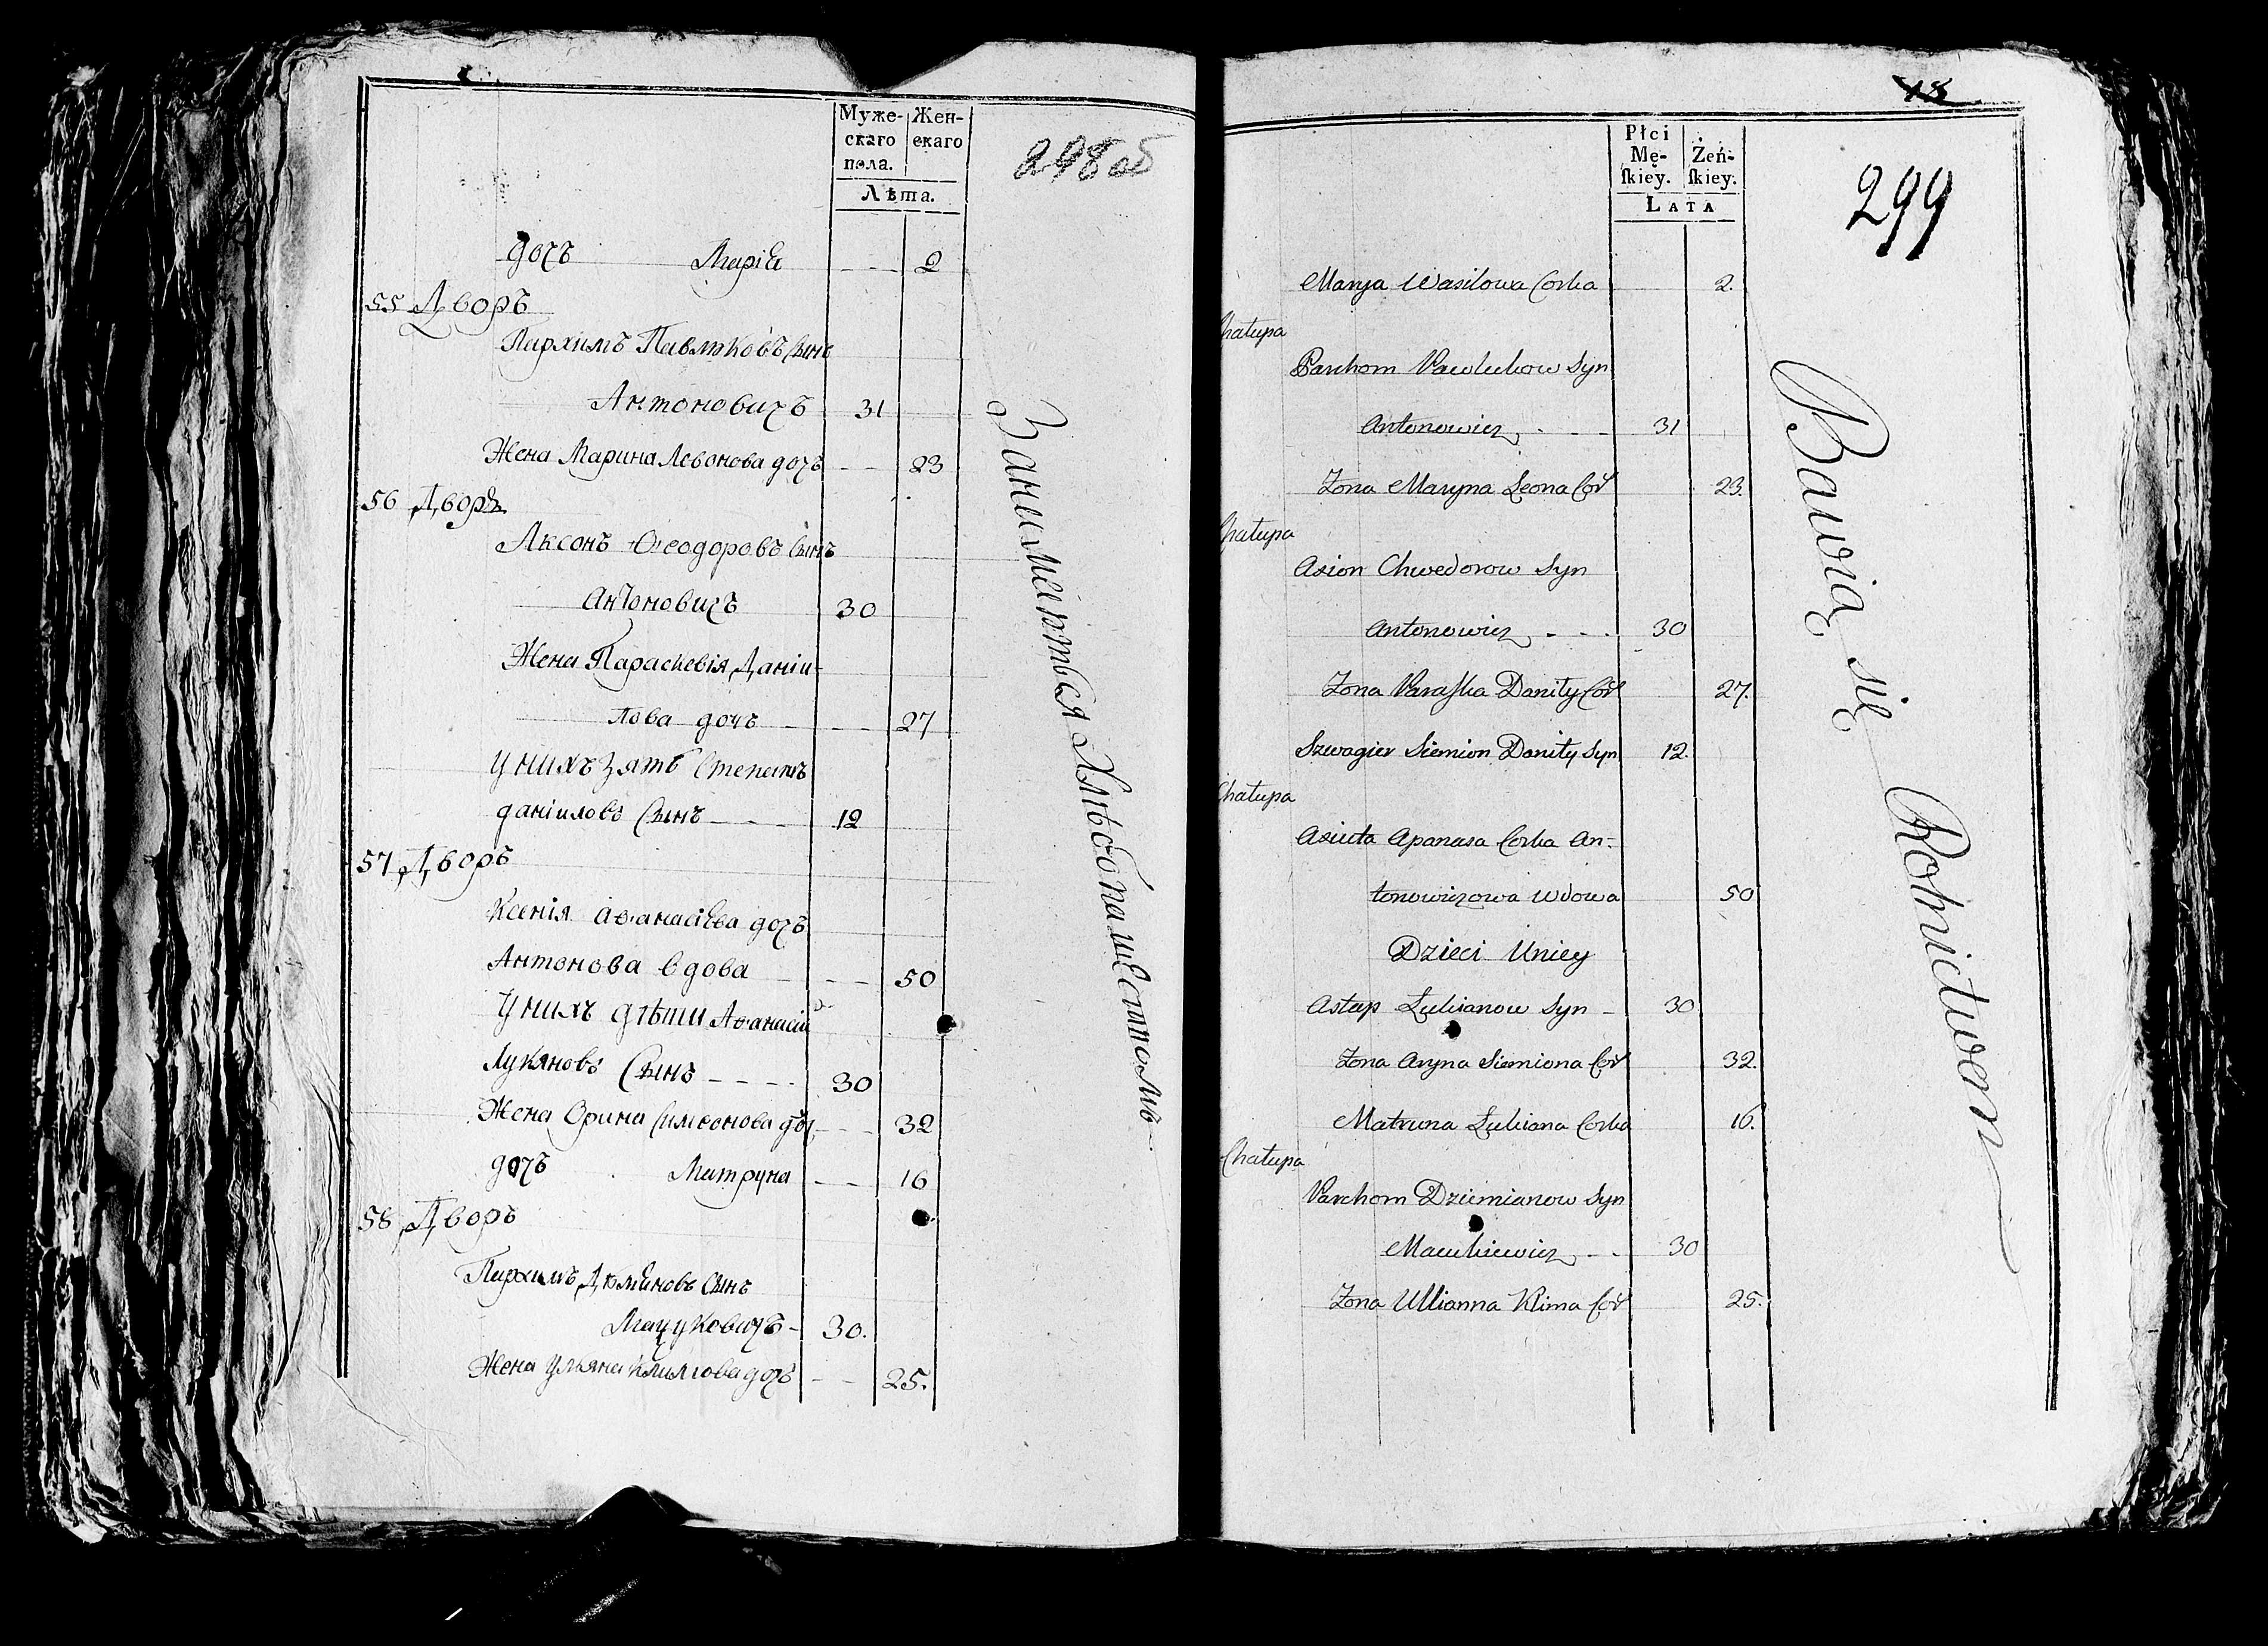 Муже-
скаго
пола.
Жен-
скаго
Лѣта.
298 об
дочъ Марія 2
55 Дворъ
Пархимъ Павлюковъ Сынъ
Антоновичъ 31
Жена Марина Левонова дочъ 23
56 Дворъ
Аксонъ Ѳеодоровъ Сынъ
Антоновичъ 30
Жена Параскевія Даніи-
лова дочъ 27
У нихъ зять Степанъ
даніиловъ Сынъ 12
57 Дворъ
Ксенія аѳанасіева дочъ
Антонова вдова 50
У нихъ дѣти Аѳанасій
Лукяновъ Сынъ 30
Жена Орина Симеонова доч 32
дочъ Матруна 16
58 Дворъ
Пархимъ Деміановъ Сынъ
Мацуковичъ 30.
Жена Ульяна Климова дочъ 25.
Занимаються Хлѣбопашествомъ
18
Płci
Mę-
ſkiey.
Żeń-
ſkiey.
LATA
299
Marya Wasilowa Corka 2.
Chałupa
Parchom Pawlukow Syn
Antonowicz 31
Zona Maryna Leona Cor 23.
Chałupa
Axion Chwedorow Syn
Antonowicz 30
Zona Paraſka Daniły Cor 27.
Szwagier Siemion Daniły Syn 12.
Chałupa
Axiuta Apanasa Corka An-
tonowiczowa Wdowa 50
Dzieci Uniey
Astap Łukianow Syn 30
Zona Aryna Siemiona Cor 32.
Matruna Łukiana Corka 16.
Chałupa
Parchom Dziemianow Syn
Macukiewicz 30
Zona Ullianna Klima Cor 25.
Bawią się Rolnictwem